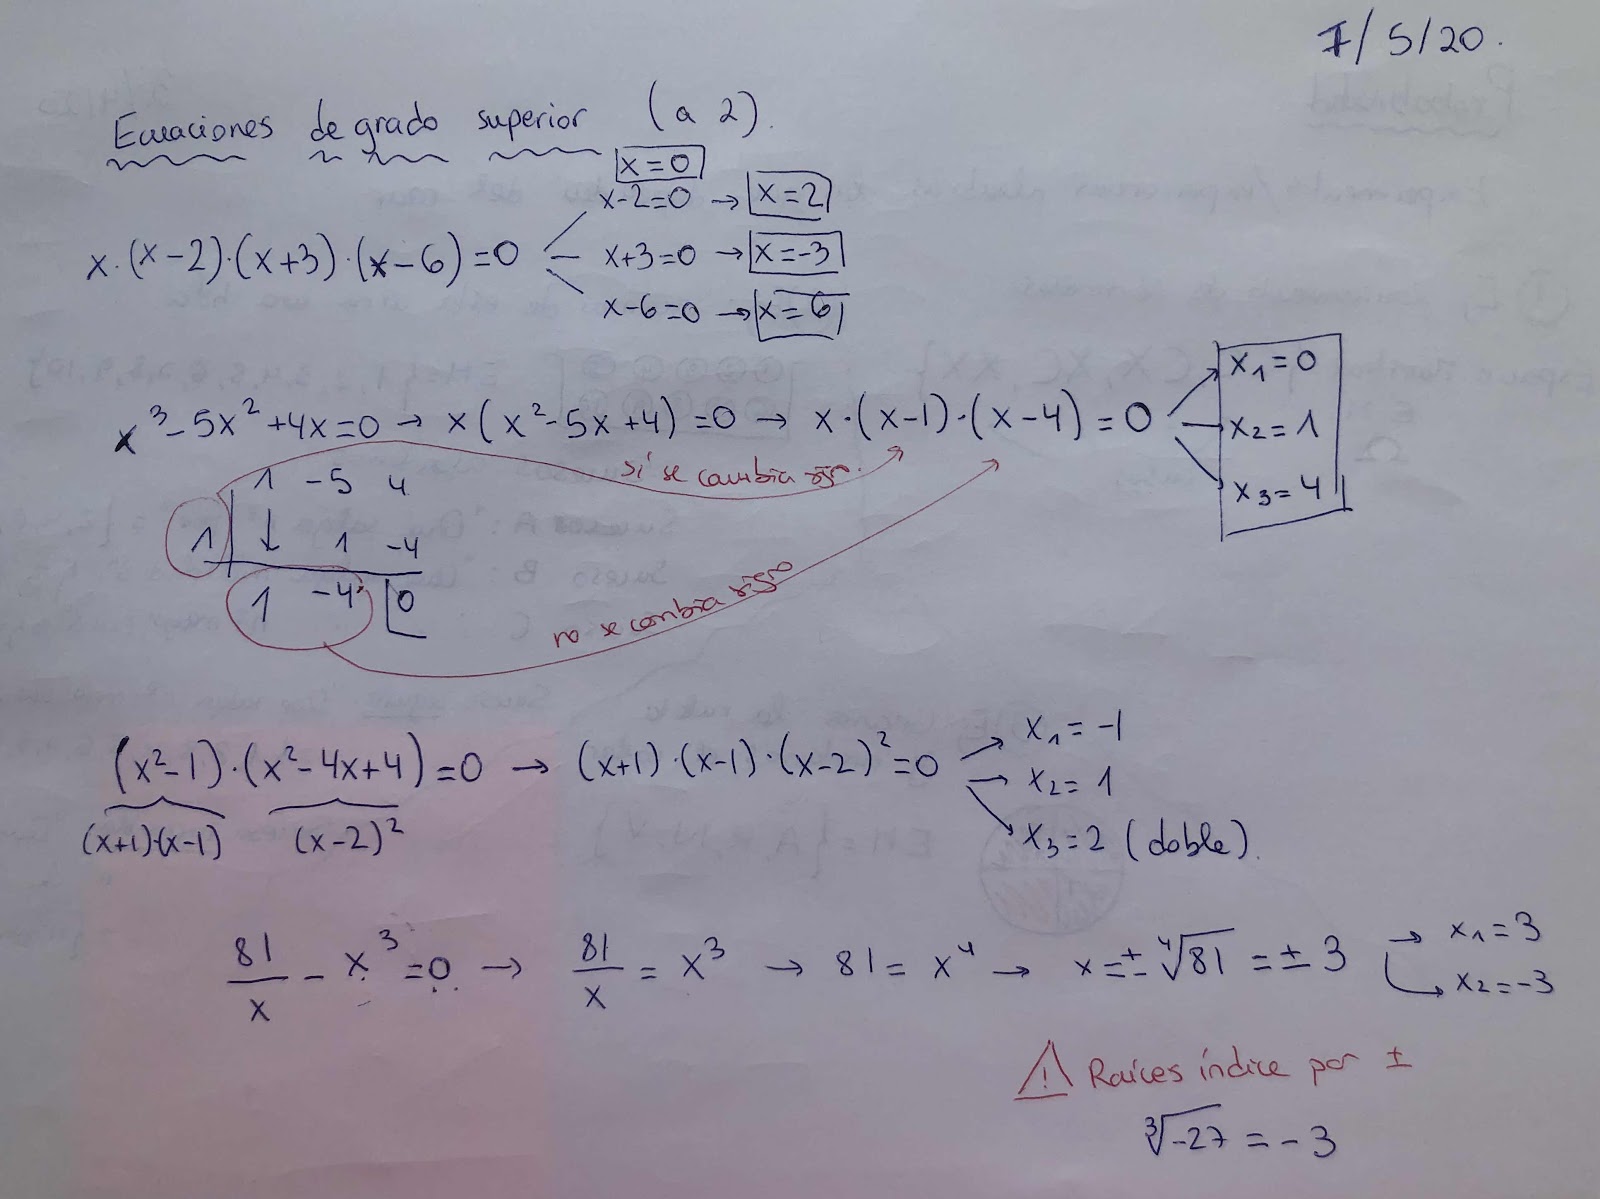 7/5/20.
Ecuaciones de grado superior (a 2).
x=0
x-2=0 → x=2
x·(x-2)·(x+3)·(x-6)=0
x+3=0 → x=-3
x-6=0 → x=6
x³-5x²+4x=0 → x(x²-5x+4)=0 → x·(x-1)·(x-4)=0
x₁=0
x₂=1
x₃=4
sí se cambia signo.
1 -5 4
1 | ↓ 1 -4
1 -4 | 0
no se cambia signo
(x²-1)·(x²-4x+4)=0 → (x+1)·(x-1)·(x-2)²=0
(x+1)·(x-1) (x-2)²
x₁=-1
x₂=1
x₃=2 (doble).
81/x - x³=0 → 81/x = x³ → 81=x⁴ → x=±⁴√81=±3
→ x₁=3
→ x₂=-3
⚠ Raíces índice par ±
³√-27 = -3